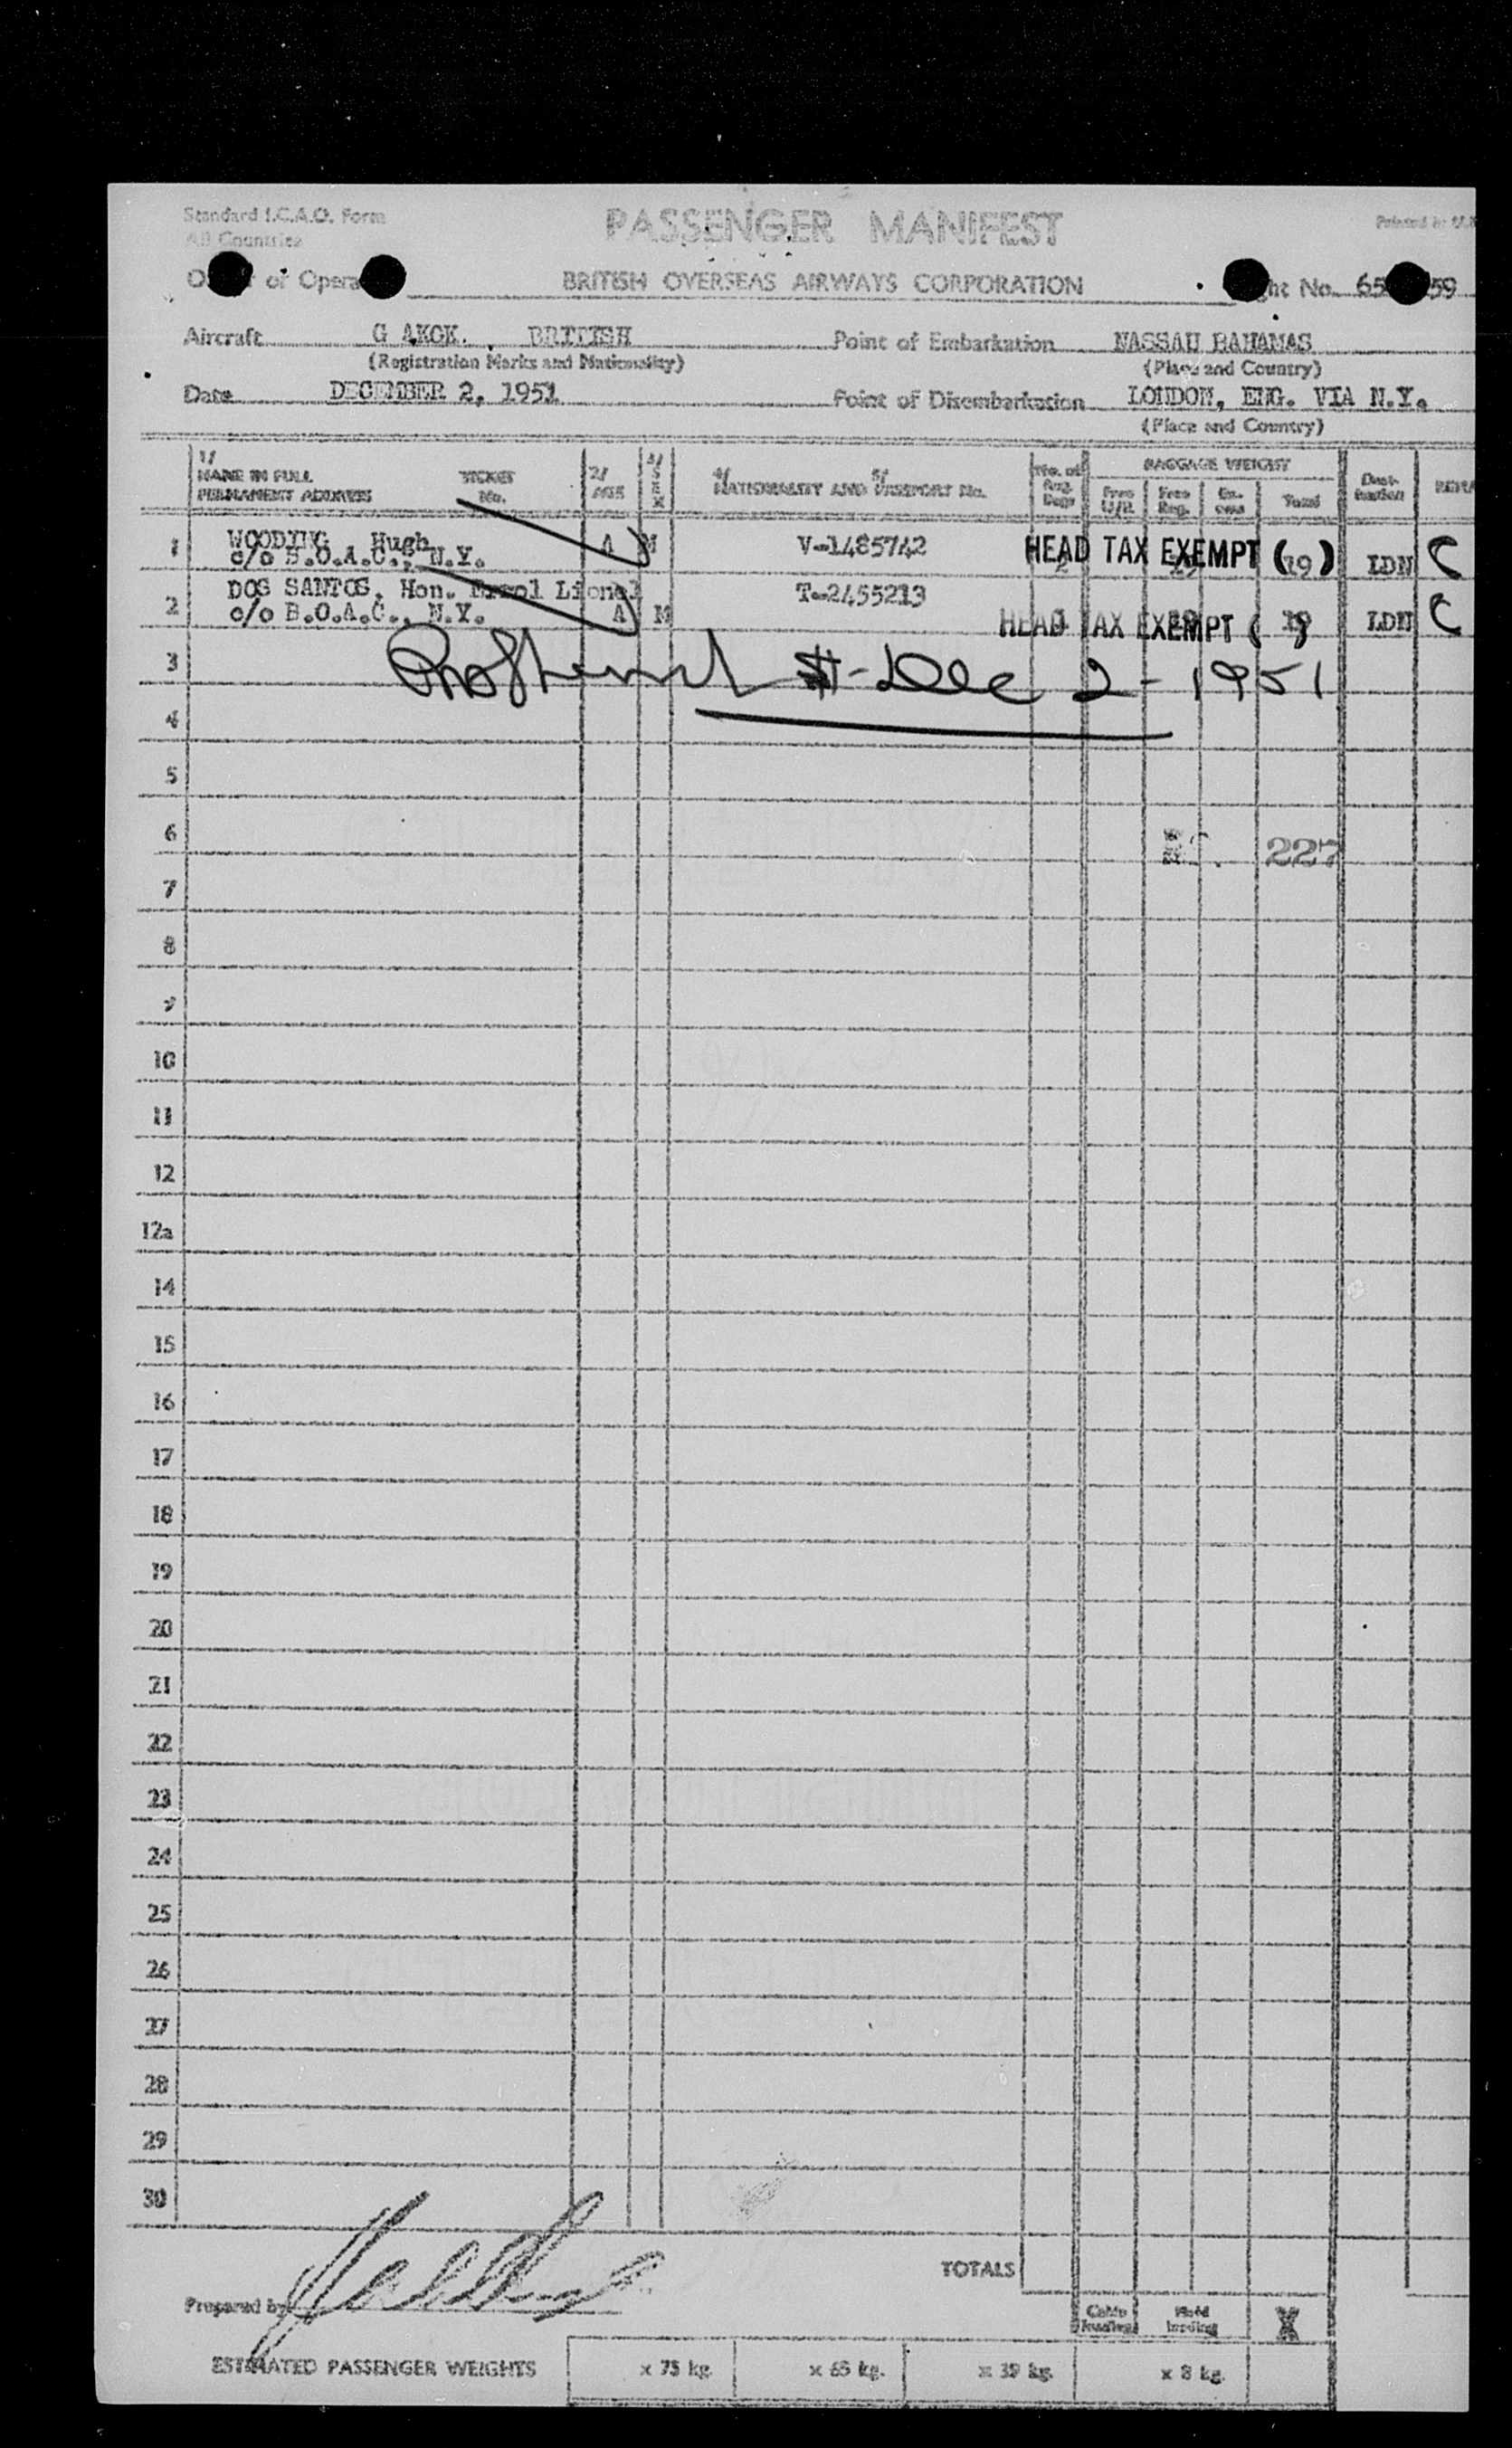 Standard I.C.A.O. Form
All Countries
PASSENGER MANIFEST
Printed in
or Opera
BRITISH OVERSEAS AIRWAYS CORPORATION
ht No. 65 59
Aircraft G AKGK. BRITISH
Point of Embarkation NASSAU BAHAMAS
(Registration Marks and Nationality)
(Place and Country)
Date DECEMBER 2, 1951
Point of Disembarkation LONDON, ENG. VIA N.Y.
(Place and Country)
1/ NAME IN FULL
PERMANENT ADDRESS
TICKET No.
2/ AGE
3/ SEX
4/ 5/ NATIONALITY AND PASSPORT No.
No. of Reg. Bags
BAGGAGE WEIGHT
Free U/R
Free Reg.
Ex-cess
Total
Dest-ination
1 WOODING Hugh A M V-1485742 HEAD TAX EXEMPT (19) LDN C
c/o B.O.A.C., N.Y.
2 DOS SANTOS, Hon. Errol Lionel T-2455213
c/o B.O.A.C., N.Y. A M HEAD TAX EXEMPT ( ) 19 LDN C
3 Dec 2 - 1951
4
5
6 227
7
8
9
10
11
12
12a
14
15
16
17
18
19
20
21
22
23
24
25
26
27
28
29
30
TOTALS
Prepared by
Cabin loading
Hold loading
X
ESTIMATED PASSENGER WEIGHTS x 75 kg. x 65 kg. x 39 kg. x 8 kg.